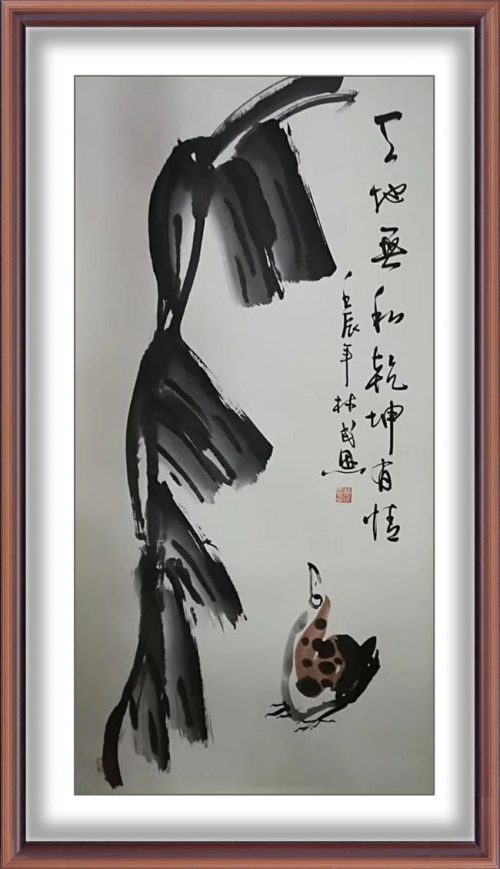 天地無私乾坤有情
壬辰年林